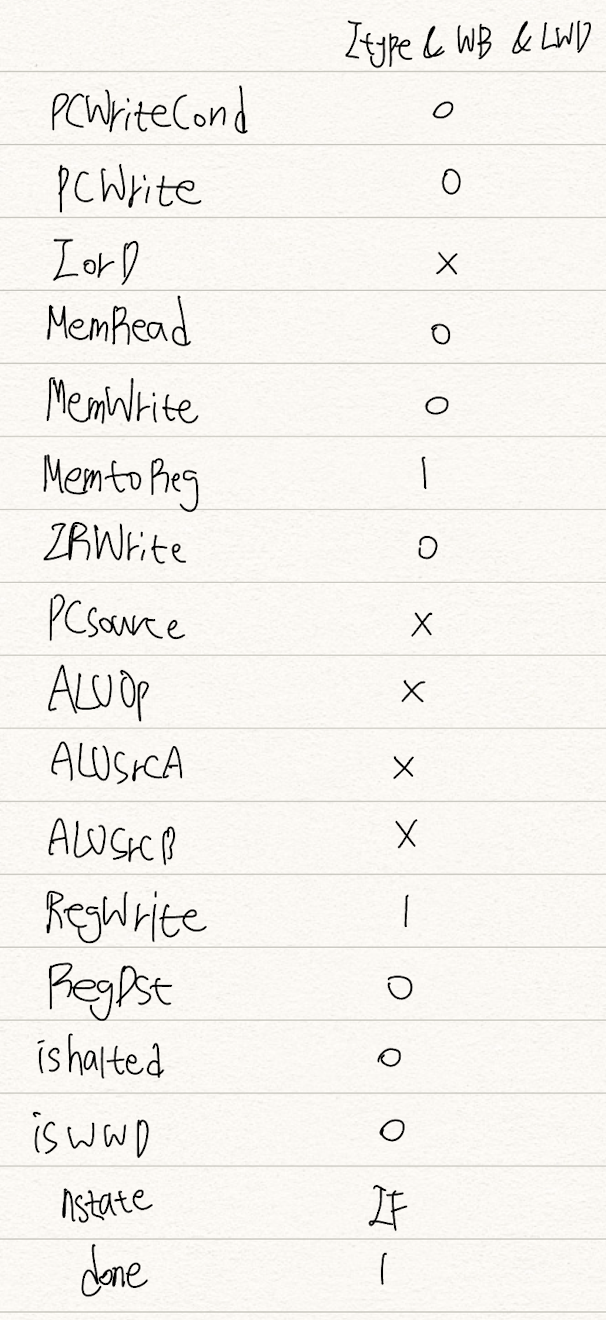 Itype & WB & LWD
PCWriteCond 0
PCWrite 0
IorD X
MemRead 0
MemWrite 0
MemtoReg 1
IRWrite 0
PCsource X
ALUOp X
ALUSrcA X
ALUSrcB X
RegWrite 1
RegDst 0
ishalted 0
isWWD 0
nstate IF
done 1